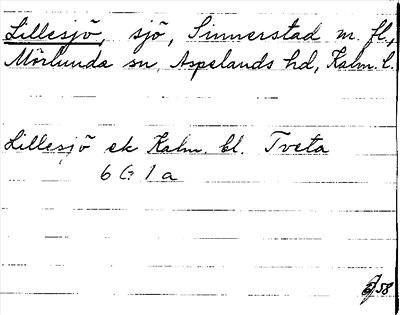 Lillesjö, sjö, Sinnerstad m. fl.,
Mörlunda sn, Aspelands hd, Kalm. l.
Lillesjö ek Kalm. bl. Tveta
6 G 1 a
58